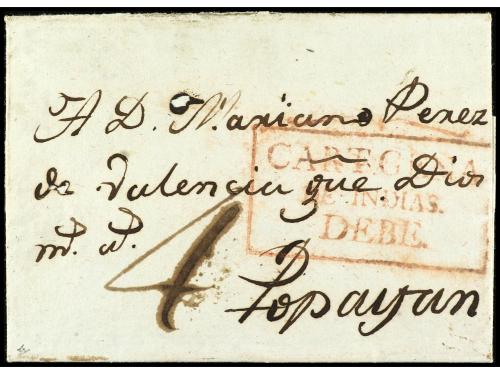 A D. Mariano Perez
de Valencia que Dios
m. a.
4
Popayan
CARTEGENA
DE INDIAS.
DEBE.